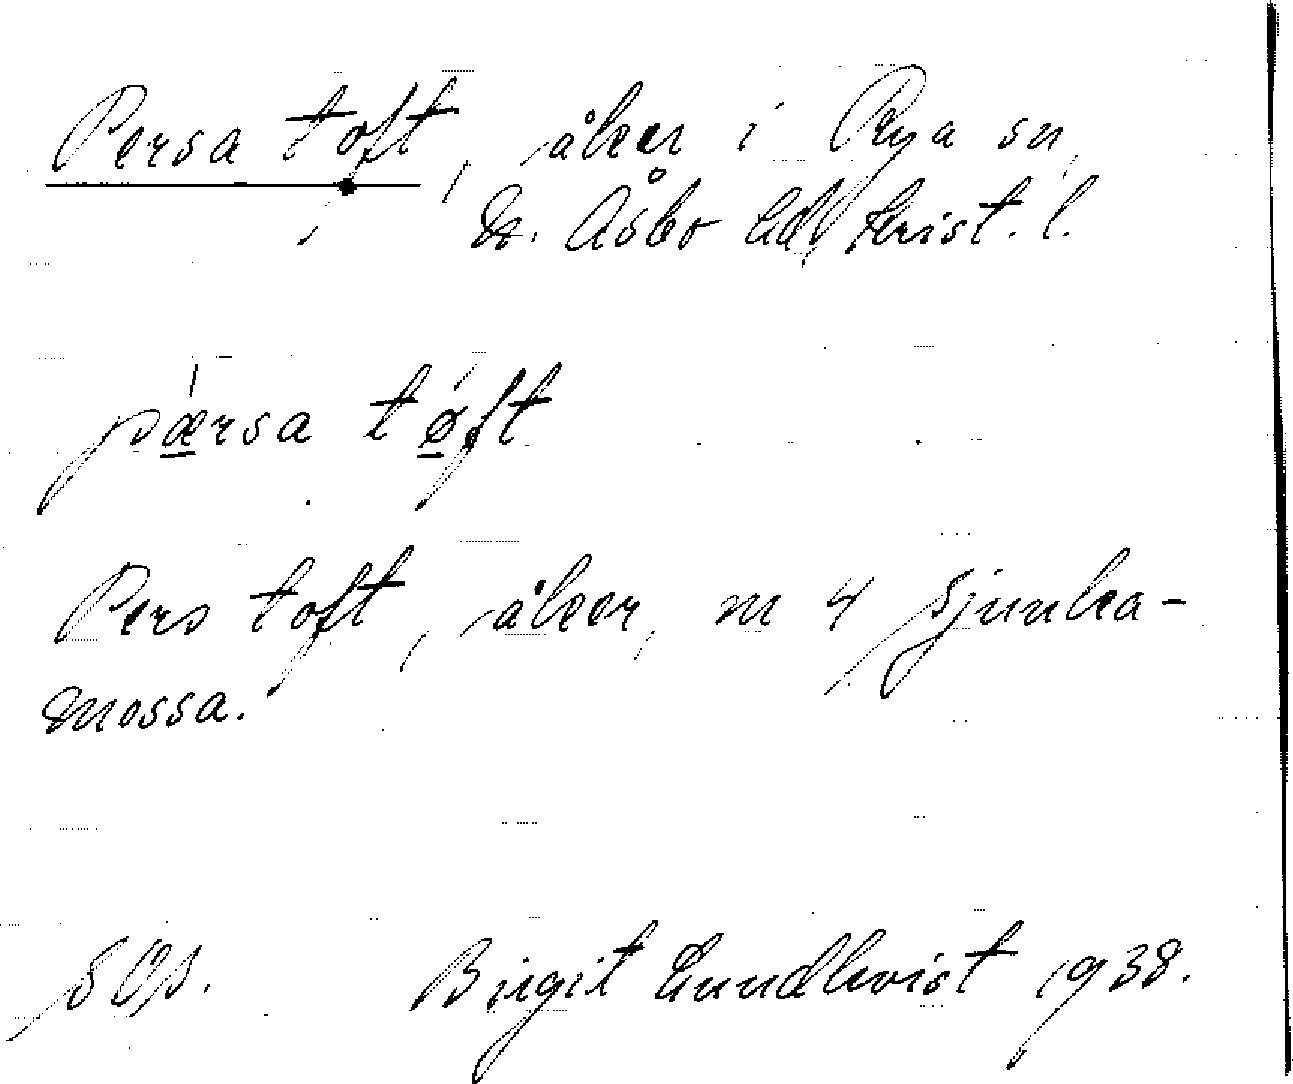 Persa toft, åker i Rya sn,
N. Åsbo hd, Krist. l.
pærsa tøft
Pers toft, åker, m 4 Sjunka-
mossa.
Birgit Lundkvist 1938.